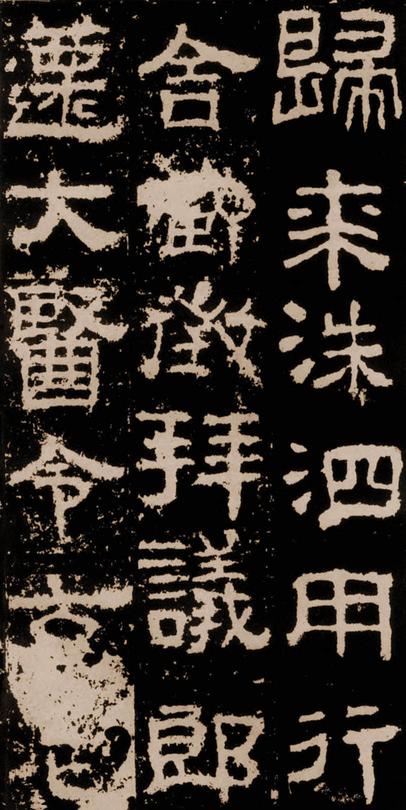 歸来洙泗用行
舍藏徵拜議郎
遷大醫令